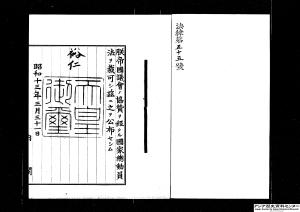 法律第五十五號
朕帝國議會ノ協賛ヲ經タル國家總動員
法ヲ裁可シ茲ニ之ヲ公布セシム
裕仁
天皇
御璽
昭和十三年三月三十一日
内閣
アジア歴史資料センター